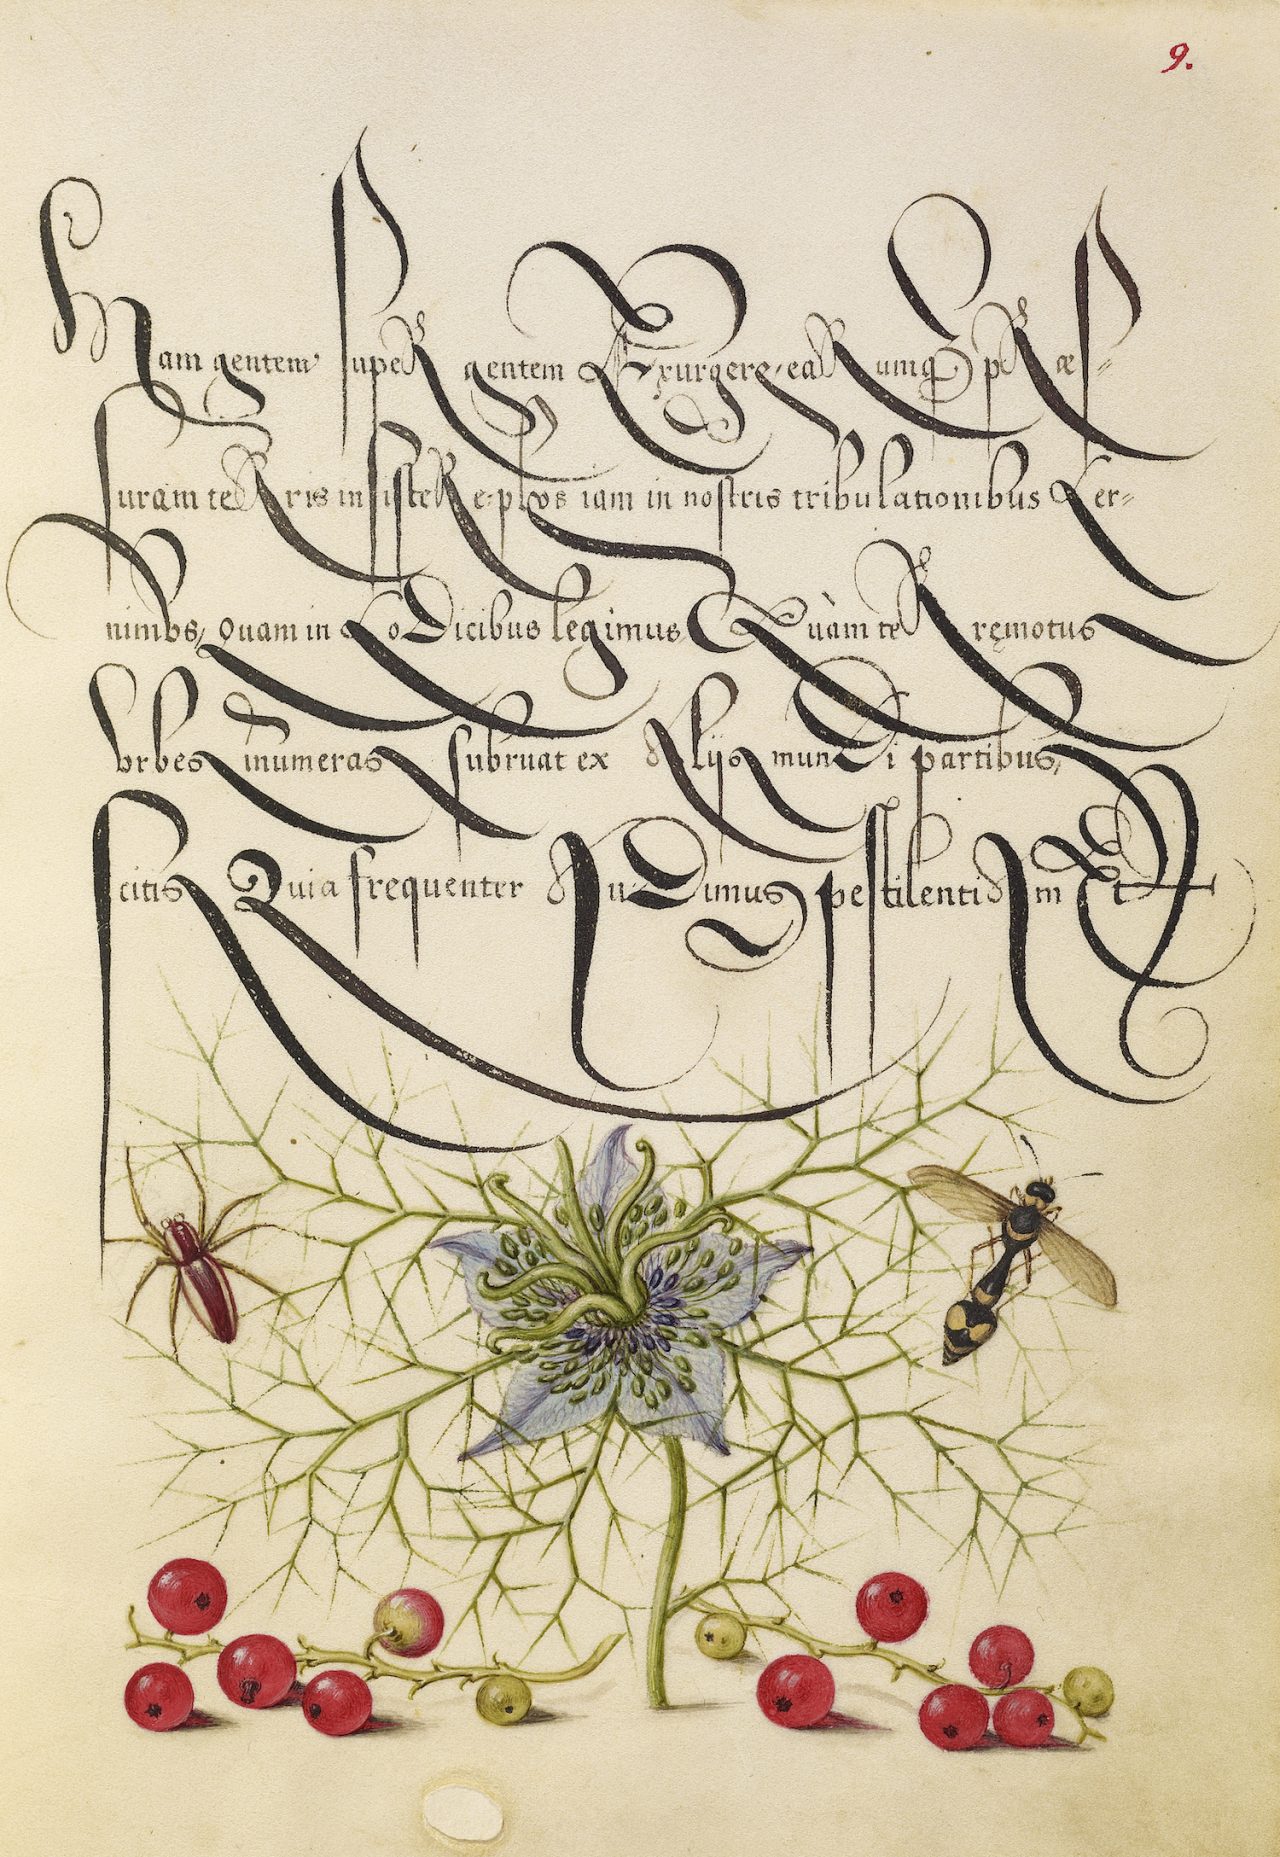 9.
Nam gentem super gentem Exurgere, earumq₃ præs=
suram terris insistere, plvs iam in nostris tribulationibus Cer=
nimvs, quam in Codicibus legimus, Quàm terręmotus
vrbes inumeras subruat ex Alijs munDi partibus,
scitis Quia frequenter AuDimus pestilentiAm Et